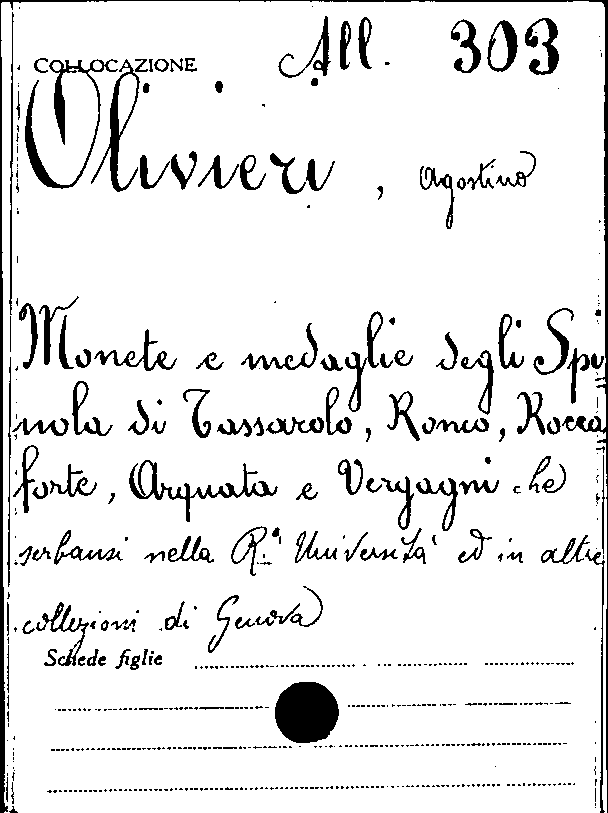 COLLOCAZIONE All. 303
Olivieri, Agostino
Monete e medaglie degli Spi
nola di Tassarolo, Ronco, Rocca
forte, Arquata e Vergagni che
serbansi nella R.ª Università ed in altre
collezioni di Genova
Schede figlie